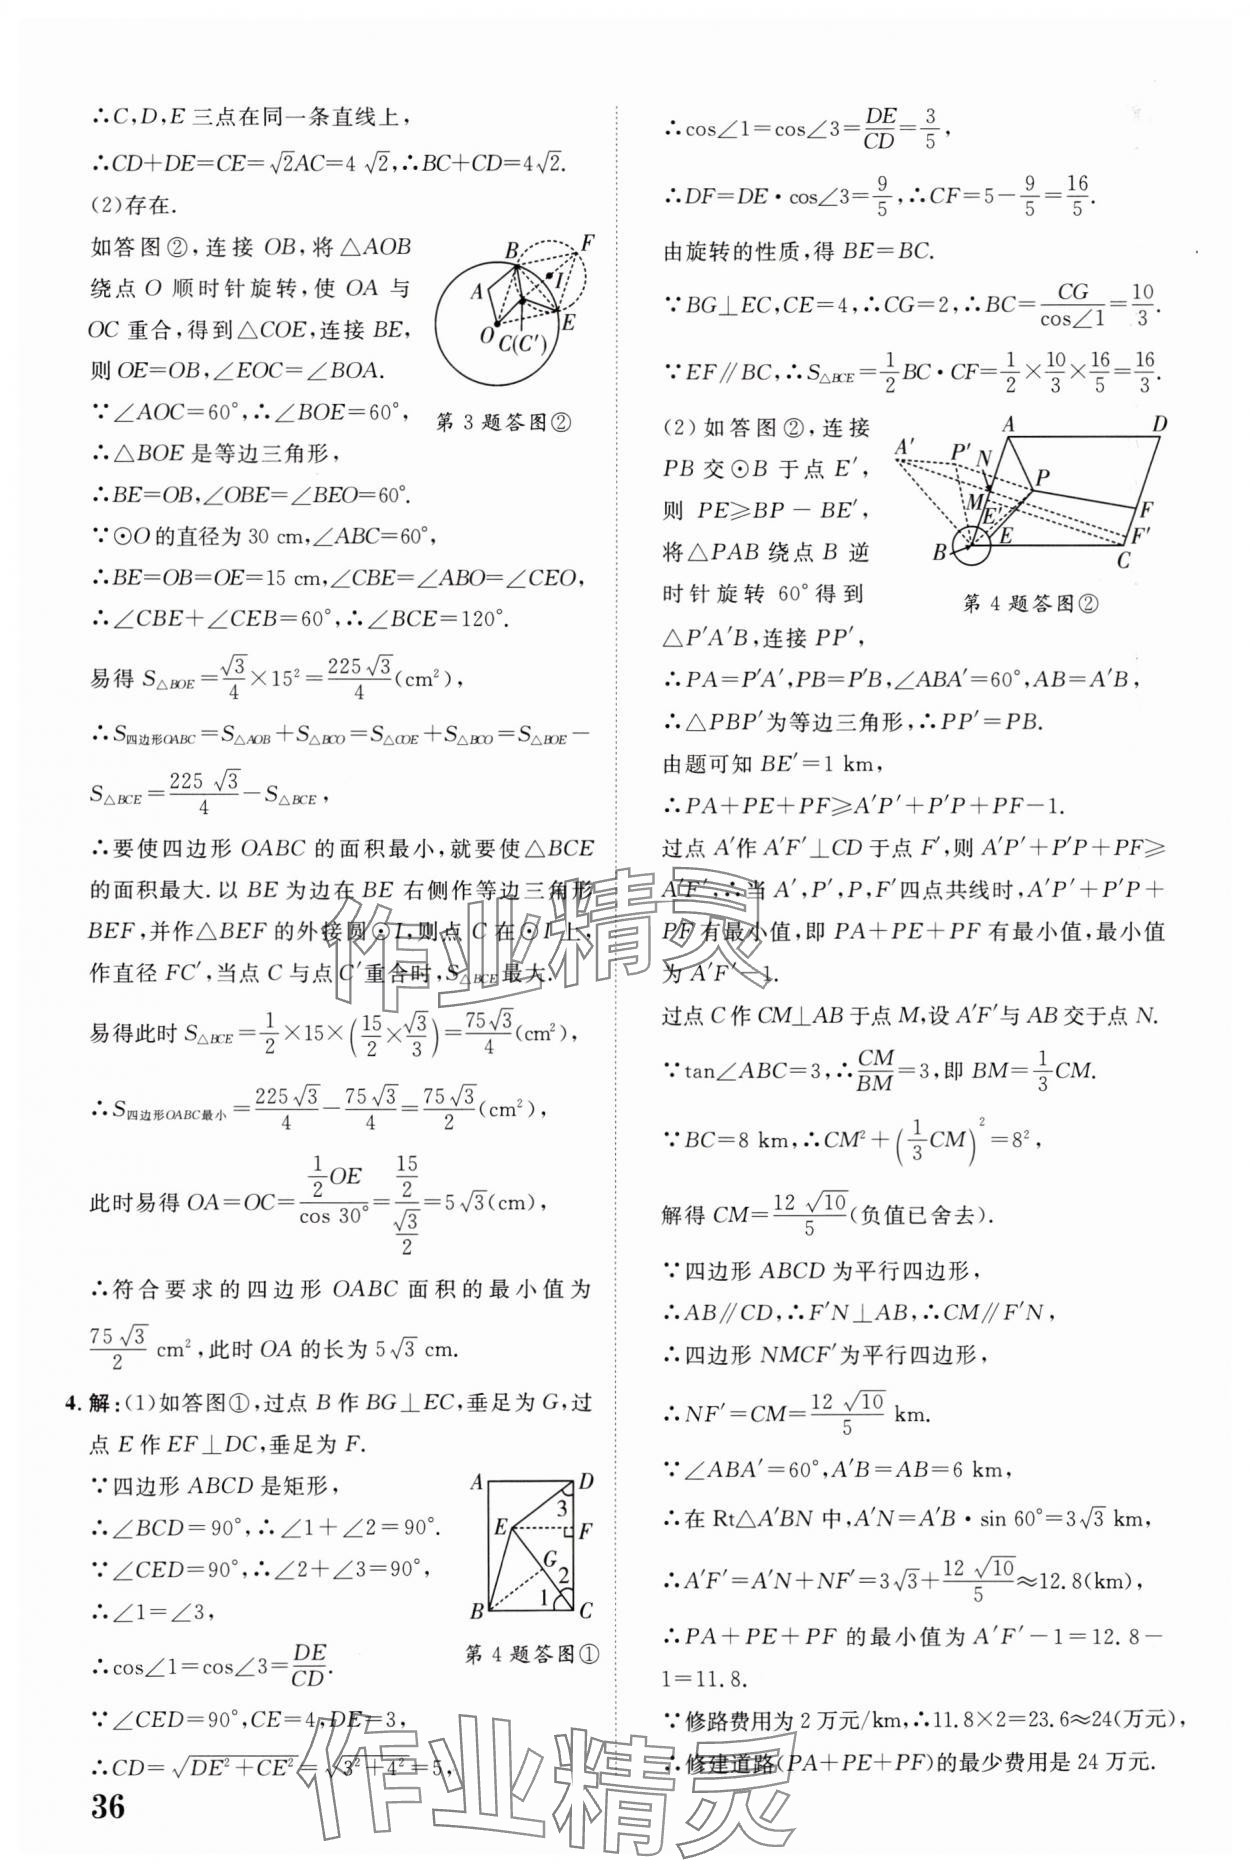 ∴C,D,E 三点在同一条直线上,
∴CD+DE=CE=√2AC=4√2,∴BC+CD=4√2.
(2)存在.
如答图②,连接 OB,将△AOB
绕点 O 顺时针旋转,使 OA 与
OC 重合,得到△COE,连接 BE,
则 OE=OB,∠EOC=∠BOA.
∵∠AOC=60°,∴∠BOE=60°,
∴△BOE 是等边三角形,
∴BE=OB,∠OBE=∠BEO=60°.
∵⊙O 的直径为 30 cm,∠ABC=60°,
∴BE=OB=OE=15 cm,∠CBE=∠ABO=∠CEO,
∴∠CBE+∠CEB=60°,∴∠BCE=120°.
易得 S△BOE=√3/4×15²=225√3/4(cm²),
∴S四边形OABC=S△AOB+S△BCO=S△COE+S△BCO=S△BOE-
S△BCE=225√3/4-S△BCE,
∴要使四边形 OABC 的面积最小,就要使△BCE
的面积最大.以 BE 为边在 BE 右侧作等边三角形
BEF,并作△BEF 的外接圆⊙I,则点 C 在⊙I 上,
作直径 FC′,当点 C 与点 C′重合时,S△BCE最大.
易得此时 S△BCE=1/2×15×(15/2×√3/3)=75√3/4(cm²),
∴S四边形OABC最小=225√3/4-75√3/4=75√3/2(cm²),
此时易得 OA=OC=(1/2 OE)/cos 30°=(15/2)/(√3/2)=5√3(cm),
∴符合要求的四边形 OABC 面积的最小值为
75√3/2 cm²,此时 OA 的长为 5√3 cm.
B
F
A
I
O
E
C(C′)
第 3 题答图②
4. 解:(1)如答图①,过点 B 作 BG⊥EC,垂足为 G,过
点 E 作 EF⊥DC,垂足为 F.
∵四边形 ABCD 是矩形,
∴∠BCD=90°,∴∠1+∠2=90°.
∵∠CED=90°,∴∠2+∠3=90°,
∴∠1=∠3,
∴cos∠1=cos∠3=DE/CD.
∵∠CED=90°,CE=4,DE=3,
∴CD=√(DE²+CE²)=√(3²+4²)=5,
A
D
3
E
F
G
2
1
B
C
第 4 题答图①
36
∴cos∠1=cos∠3=DE/CD=3/5,
∴DF=DE·cos∠3=9/5,∴CF=5-9/5=16/5.
由旋转的性质,得 BE=BC.
∵BG⊥EC,CE=4,∴CG=2,∴BC=CG/cos∠1=10/3.
∵EF∥BC,∴S△BCE=1/2BC·CF=1/2×10/3×16/5=16/3.
(2)如答图②,连接
PB 交⊙B 于点 E′,
则 PE≥BP-BE′,
将△PAB 绕点 B 逆
时针旋转 60°得到
△P′A′B,连接 PP′,
∴PA=P′A′,PB=P′B,∠ABA′=60°,AB=A′B,
∴△PBP′为等边三角形,∴PP′=PB.
由题可知 BE′=1 km,
∴PA+PE+PF≥A′P′+P′P+PF-1.
过点 A′作 A′F′⊥CD 于点 F′,则 A′P′+P′P+PF≥
A′F′,∴当 A′,P′,P,F′四点共线时,A′P′+P′P+
PF 有最小值,即 PA+PE+PF 有最小值,最小值
为 A′F′-1.
过点 C 作 CM⊥AB 于点 M,设 A′F′与 AB 交于点 N.
∵tan∠ABC=3,∴CM/BM=3,即 BM=1/3CM.
∵BC=8 km,∴CM²+(1/3CM)²=8²,
解得 CM=12√10/5(负值已舍去).
∵四边形 ABCD 为平行四边形,
∴AB∥CD,∴F′N⊥AB,∴CM∥F′N,
∴四边形 NMCF′为平行四边形,
∴NF′=CM=12√10/5 km.
∵∠ABA′=60°,A′B=AB=6 km,
∴在 Rt△A′BN 中,A′N=A′B·sin 60°=3√3 km,
∴A′F′=A′N+NF′=3√3+12√10/5≈12.8(km),
∴PA+PE+PF 的最小值为 A′F′-1=12.8-
1=11.8.
∵修路费用为 2 万元/km,∴11.8×2=23.6≈24(万元),
∴修建道路(PA+PE+PF)的最少费用是 24 万元.
A
D
A′
P′
N
P
M
E′
F
E
F′
B
C
第 4 题答图②
作业精灵
作业精灵